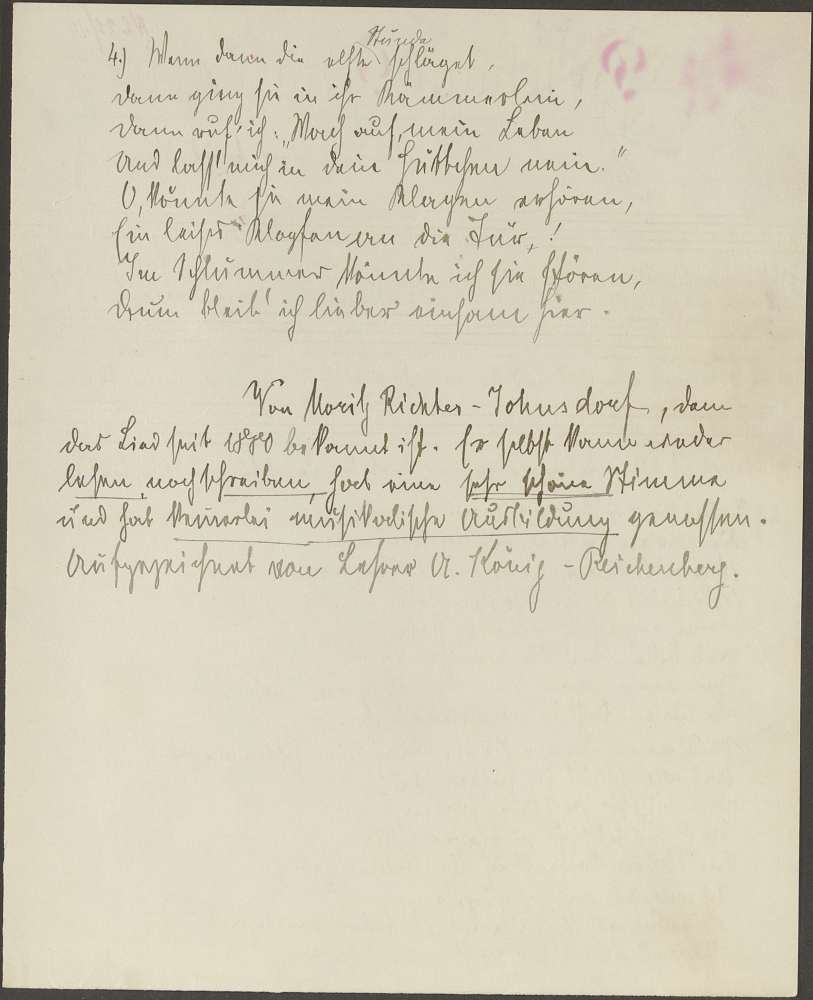 4.) Wenn dann die elfte Stunde schläget,
dann ging sie in ihr Kämmerlein,
dann ruf' ich: „Wach auf, mein Leben
Und lass' mich in dein Hüttchen nein.“
O, könnte sie mein Klagen erhören,
Ein leises Klopfen an die Tür,!
Im Schlummer könnte ich sie stören,
Drum bleib' ich lieber einsam hier.
Von Moritz Richter-Johnsdorf, dem
das Lied seit 1880 bekannt ist. Er selbst kann weder
lesen, noch schreiben, hat eine sehr schöne Stimme
und hat keinerlei musikalische Ausbildung genossen.
Aufgezeichnet von Lehrer A. König - Reichenberg.